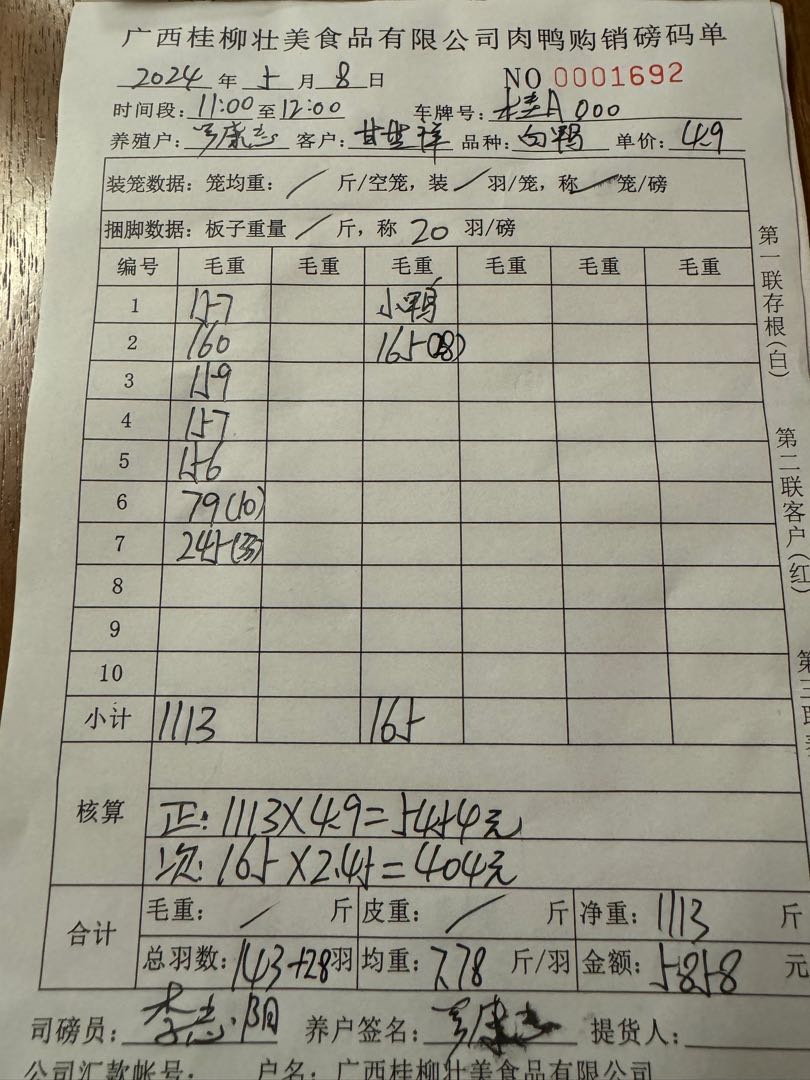 广西桂柳壮美食品有限公司肉鸭购销磅码单
2024 年 5 月 8 日 NO 0001692
时间段: 11:00 至 12:00 车牌号: 桂A 000
养殖户: 康志 客户: 甘 品种: 白鸭 单价: 4.9
装笼数据: 笼均重: / 斤/空笼, 装 / 羽/笼, 称 / 笼/磅
捆脚数据: 板子重量 / 斤, 称 20 羽/磅
编号 毛重 毛重 毛重 毛重 毛重 毛重
1 157 小鸭
2 160 165(28)
3 159
4 157
5 156
6 79(10)
7 245(33)
8
9
10
小计 1113 165
核算
正: 1113×4.9=5454元
次: 165×2.45=404元
合计
毛重: / 斤 皮重: / 斤 净重: 1113 斤
总羽数: 143+28 羽 均重: 7.78 斤/羽 金额: 5858 元
司磅员: 李志阳 养户签名: 康志 提货人:
公司汇款帐号: 户名: 广西桂柳壮美食品有限公司
第一联存根(白)
第二联客户(红)
第三联